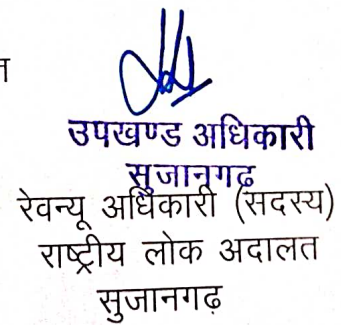 उपखण्ड अधिकारी
सुजानगढ़
रेवन्यू अधिकारी (सदस्य)
राष्ट्रीय लोक अदालत
सुजानगढ़